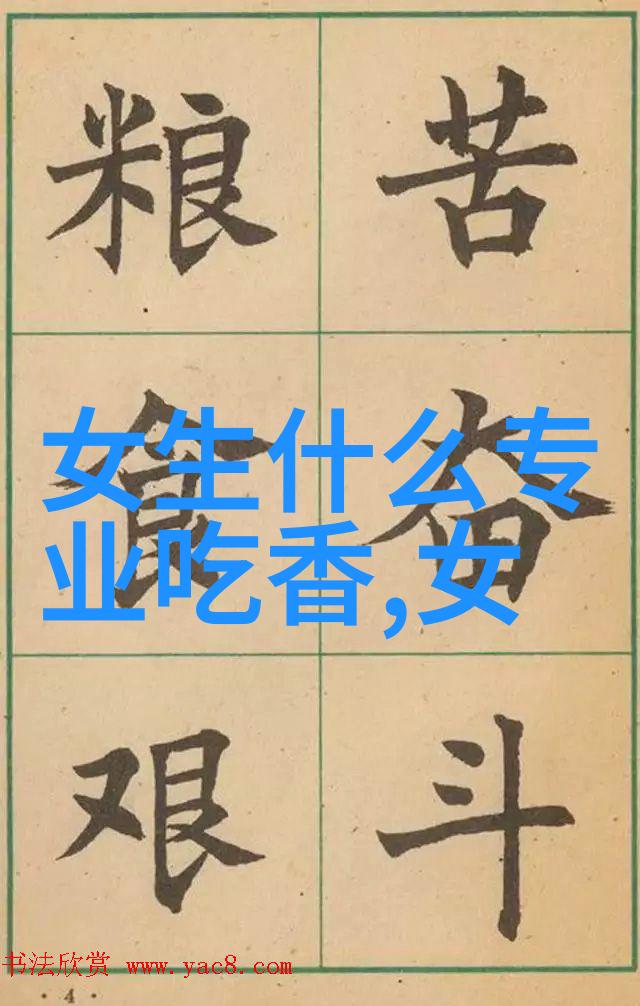 粮 苦
食 奋
艰 斗
女生什么专
业吃香,女
书法欣赏 www.yac8.com
· 4 ·